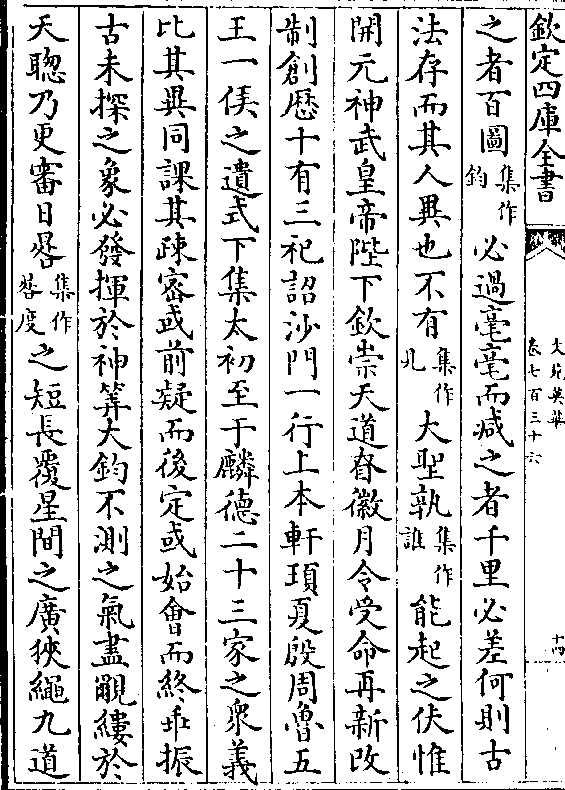 欽定四庫全書
文苑英華
卷七百三十六
十四
之者百圖集作鈞必過毫毫而减之者千里必差何則古
法存而其人異也不有集作凡大聖孰集作誰能起之伏惟
開元神武皇帝陛下欽崇天道眷徽月令受命再新改
制創厯十有三祀詔沙門一行上本軒頊夏殷周魯五
王一侯之遺式下集太初至于麟德二十三家之衆義
比其異同課其疎宻或前疑而後定或始會而終乖振
古未探之象必發揮於神筭大鈞不測之氣盡覼縷於
天聰乃更審日晷集作晷度之短長覆星間之廣狹繩九道